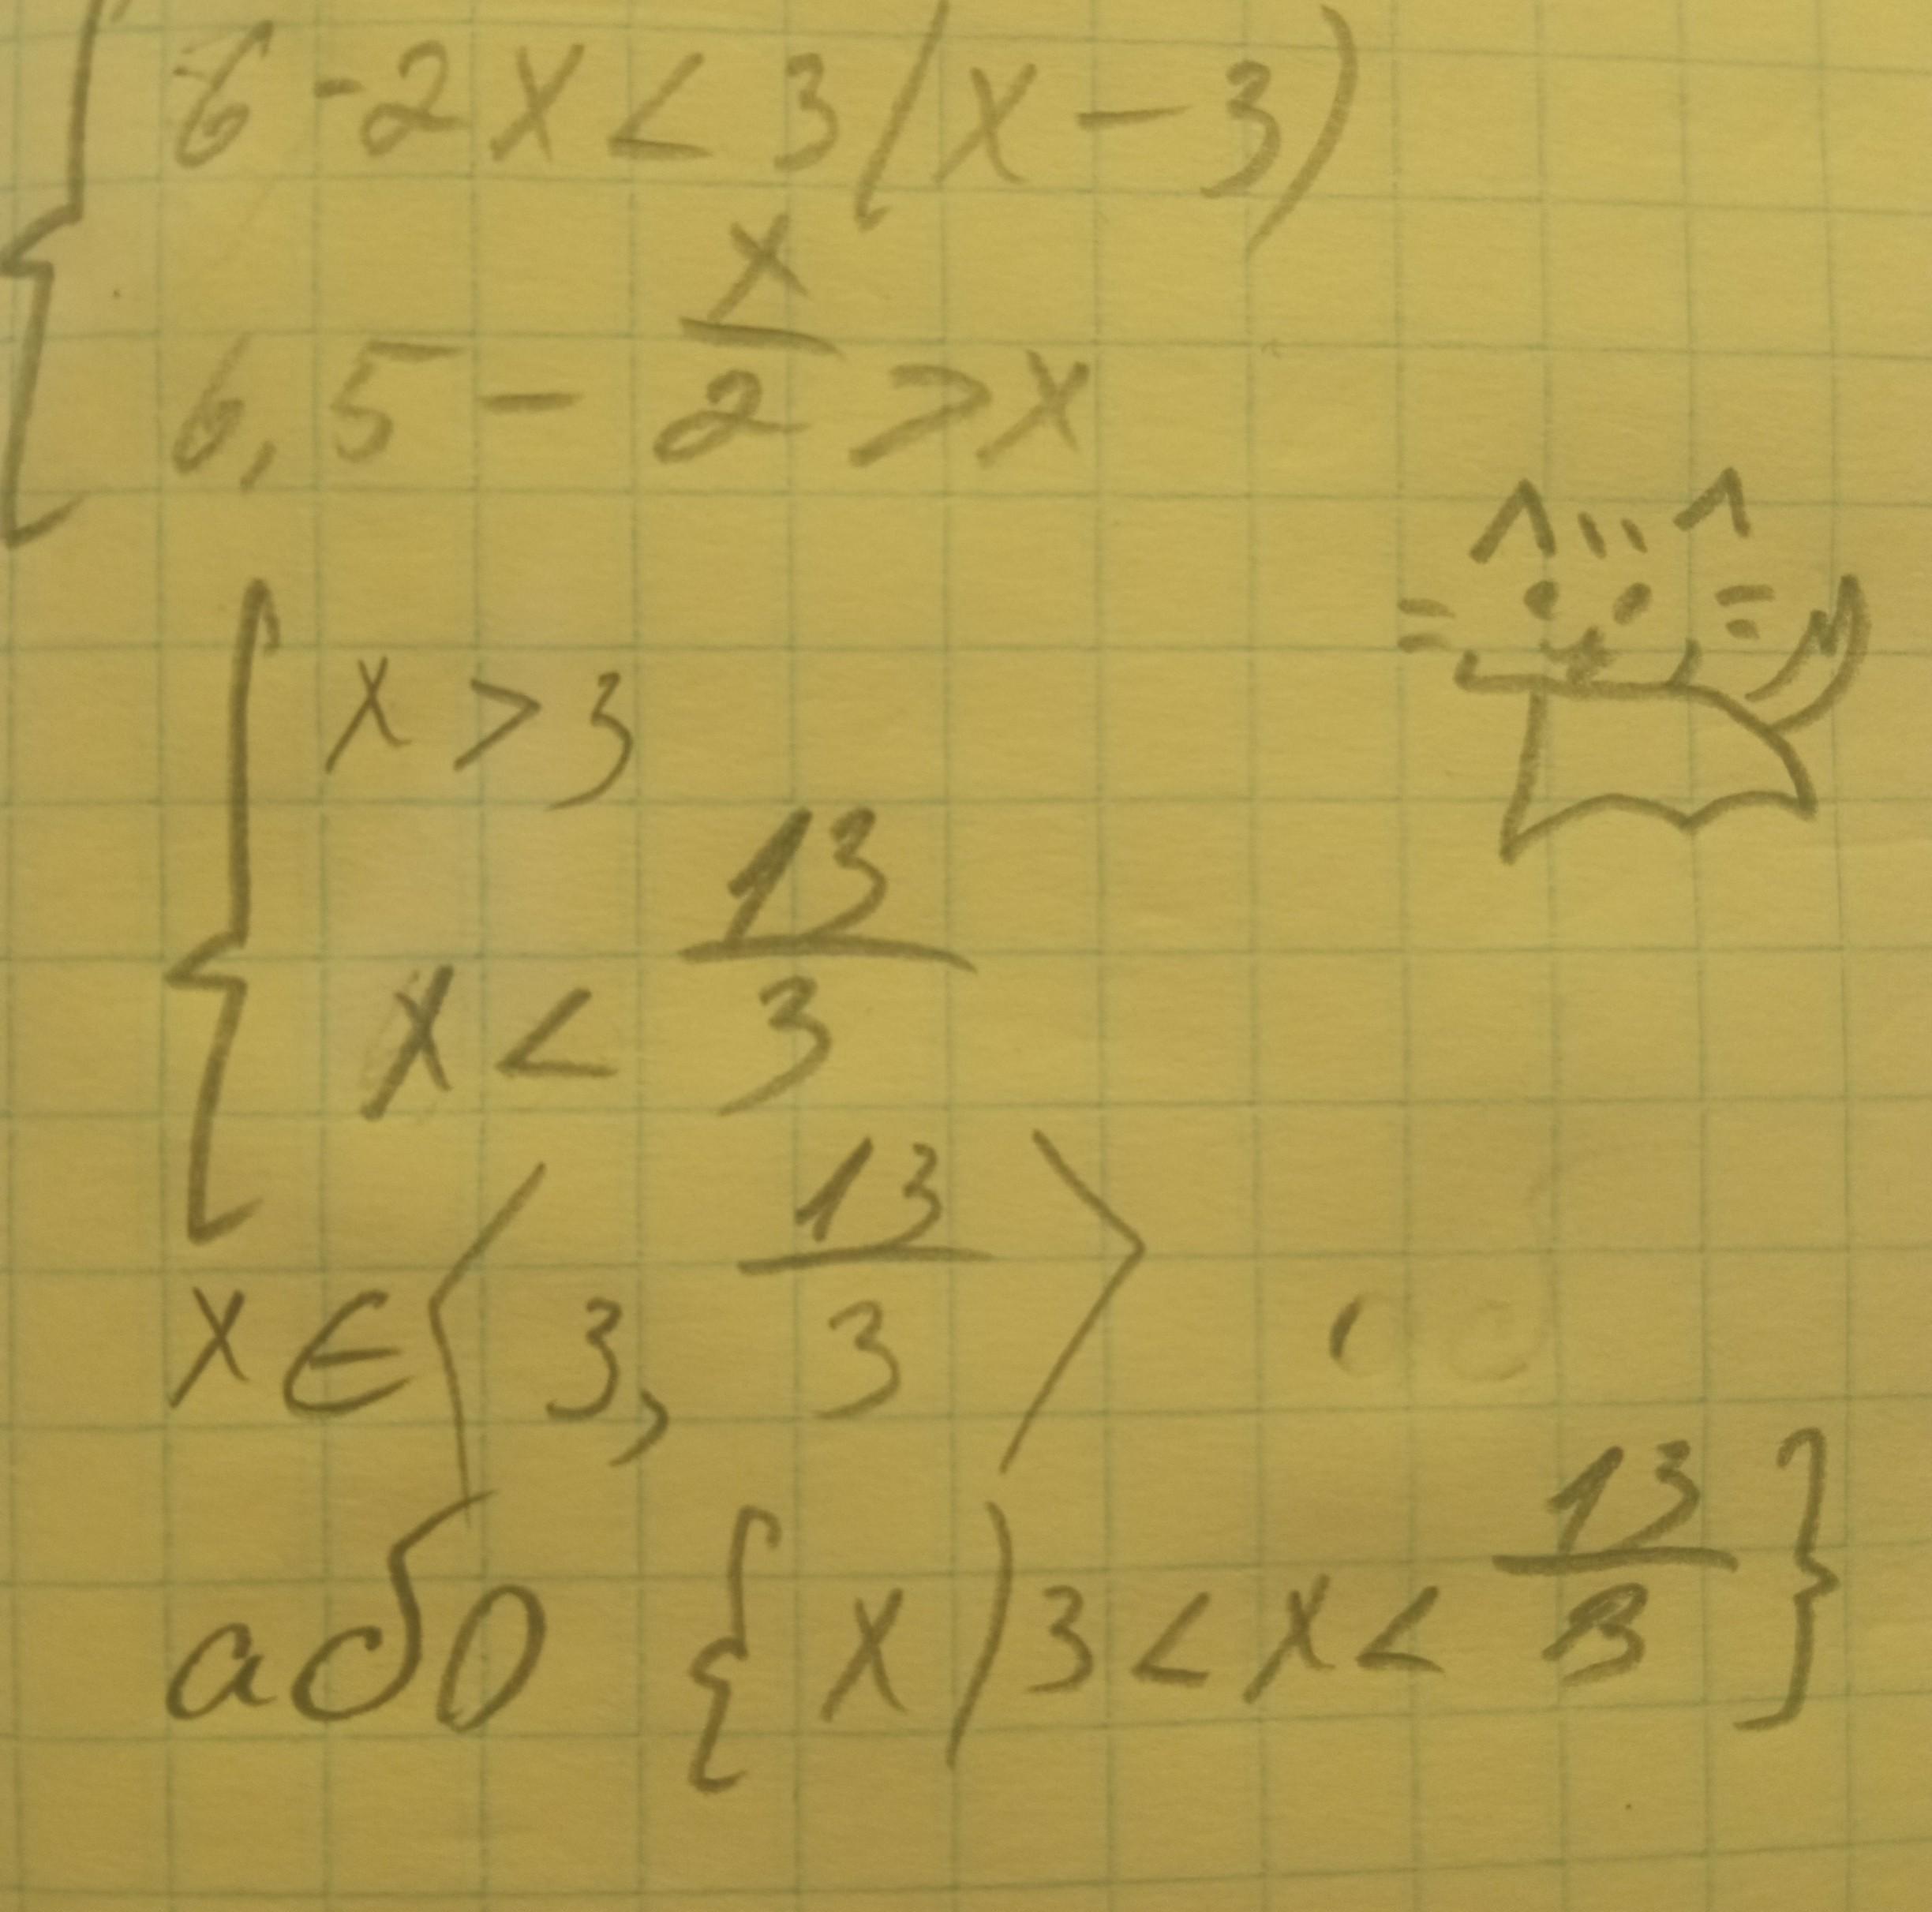 6 - 2x < 3(x - 3)
6,5 - x/2 > x
x > 3
x < 13/3
x ∈ ⟨3, 13/3⟩
або {x | 3 < x < 13/3}